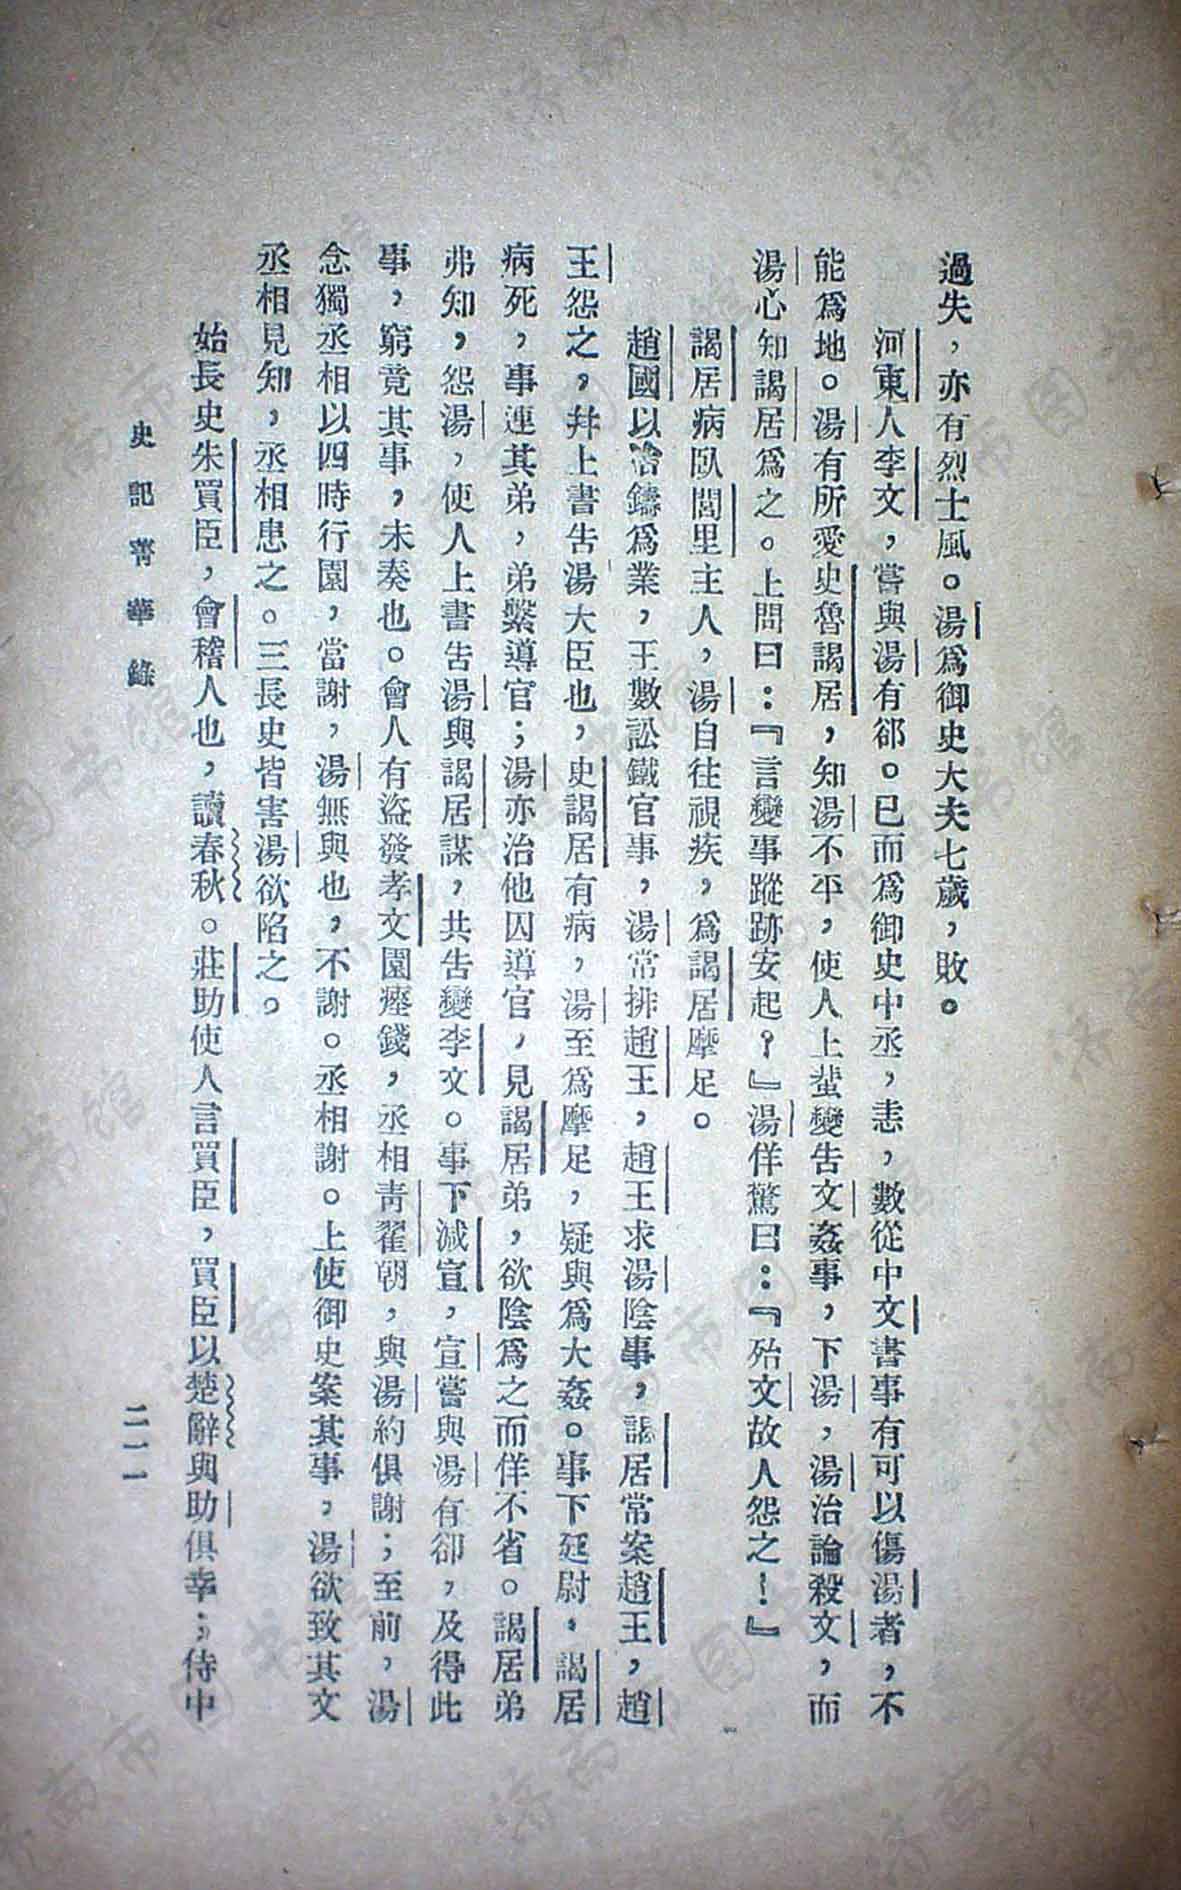 過失，亦有烈士風。湯爲御史大夫七歲，敗。
河東人李文，嘗與湯有郤。已而爲御史中丞，恚，數從中文書事有可以傷湯者，不
能爲地。湯有所愛史魯謁居，知湯不平，使人上蜚變告文姦事，下湯，湯治論殺文，而
湯心知謁居爲之。上問曰：『言變事蹤跡安起？』湯佯驚曰：『殆文故人怨之！』
謁居病臥閭里主人，湯自往視疾，爲謁居摩足。
趙國以冶鑄爲業，王數訟鐵官事，湯常排趙王，趙王求湯陰事，謁居常案趙王，趙
王怨之，幷上書告湯大臣也，史謁居有病，湯至爲摩足，疑與爲大姦。事下廷尉。謁居
病死，事連其弟，弟繫導官；湯亦治他囚導官，見謁居弟，欲陰爲之而佯不省。謁居弟
弗知，怨湯，使人上書告湯與謁居謀，共告變李文。事下減宣，宣嘗與湯有卻，及得此
事，窮竟其事，未奏也。會人有盜發孝文園瘞錢，丞相靑翟朝，與湯約俱謝；至前，湯
念獨丞相以四時行園，當謝，湯無與也，不謝。丞相謝。上使御史案其事，湯欲致其文
丞相見知，丞相患之。三長史皆害湯欲陷之。
始長史朱買臣，會稽人也，讀春秋。莊助使人言買臣，買臣以楚辭與助俱幸；侍中
史記菁華錄
二一一
济南市图书馆